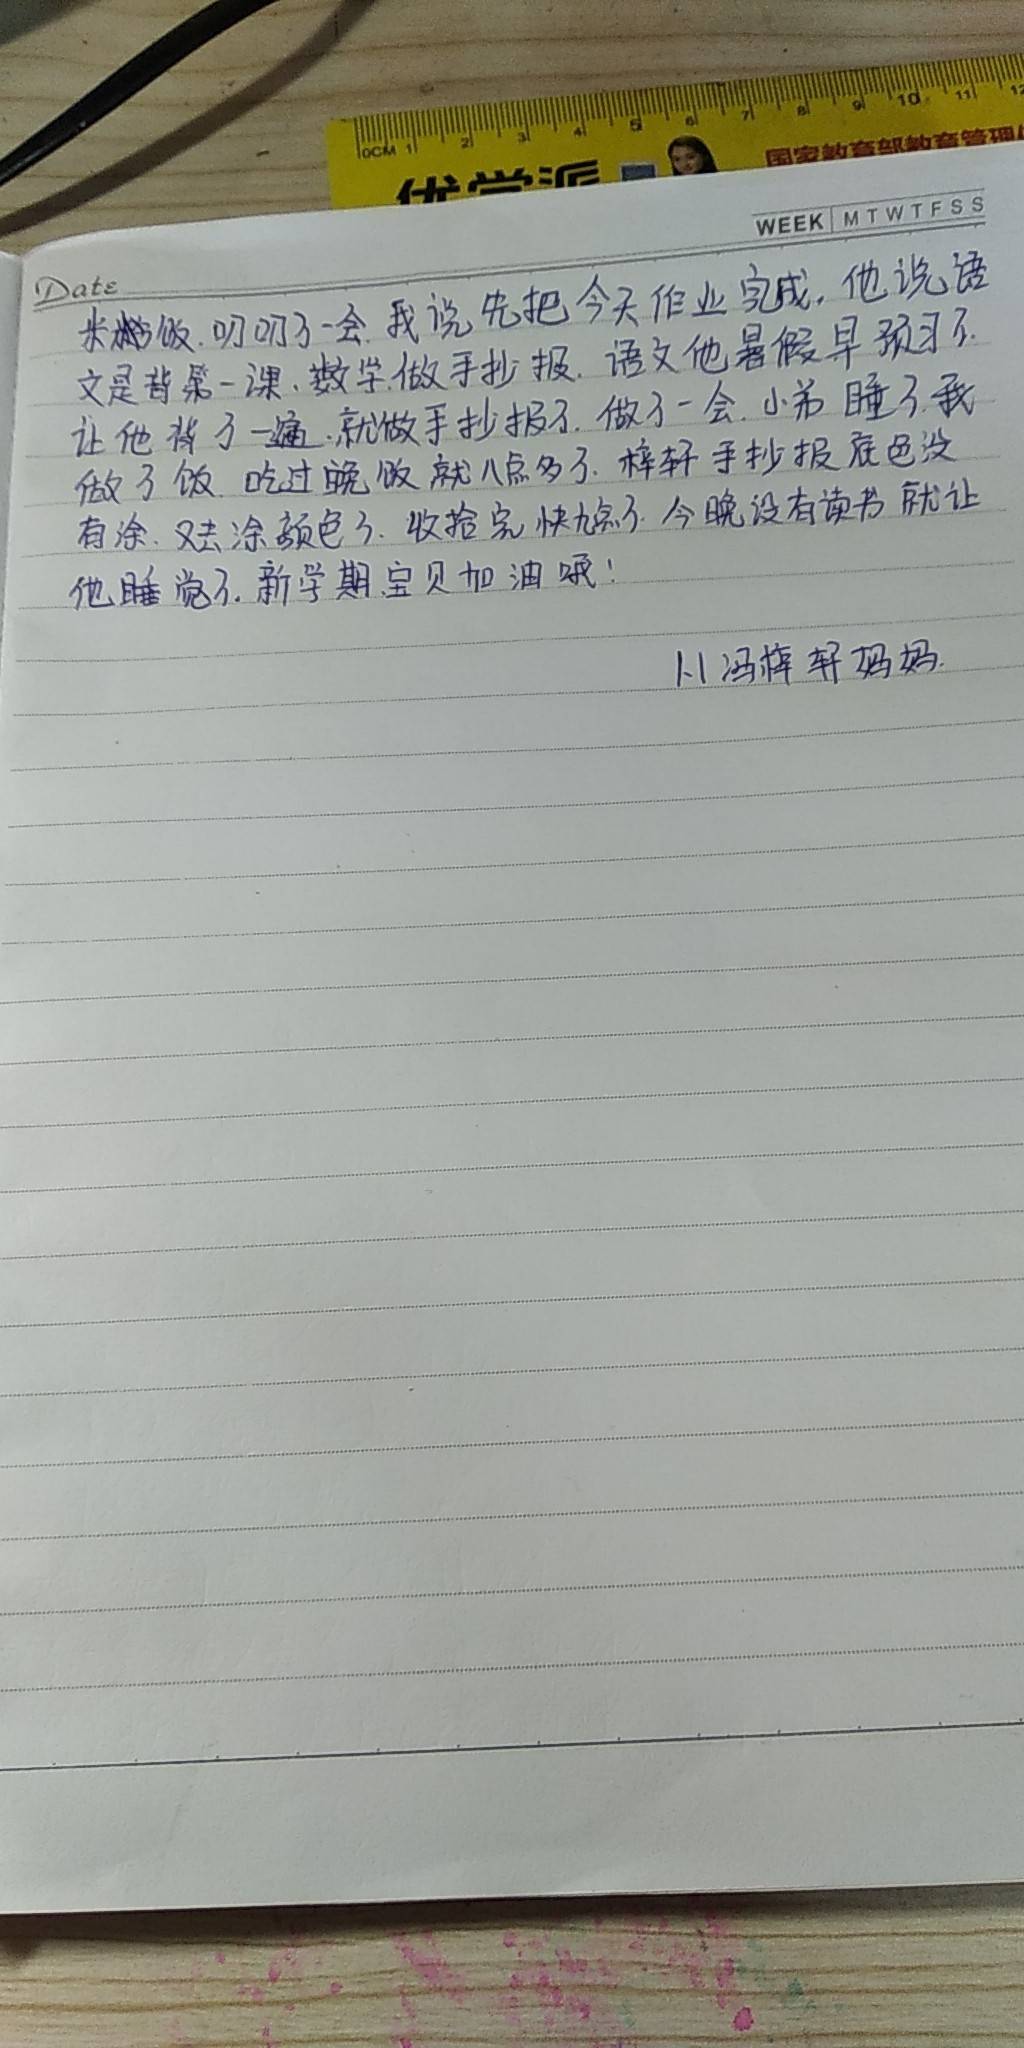 0CM 1 2 3 4 5 6 7 8 9 10 11 12
优学派 国家教育部教育管理
WEEK M T W T F S S
Date
饭.叨叨了一会.我说先把今天作业完成.他说语
文是背第一课.数学.做手抄报.语文他暑假早预习了.
让他背了一遍.就做手抄报了.做了一会.小弟睡了.我
做了饭.吃过晚饭就八点多了.梓轩手抄报底色没
有涂.又去涂颜色了.收拾完快九点了.今晚没有读书就让
他睡觉了.新学期.宝贝加油哦!
1.1冯梓轩妈妈.